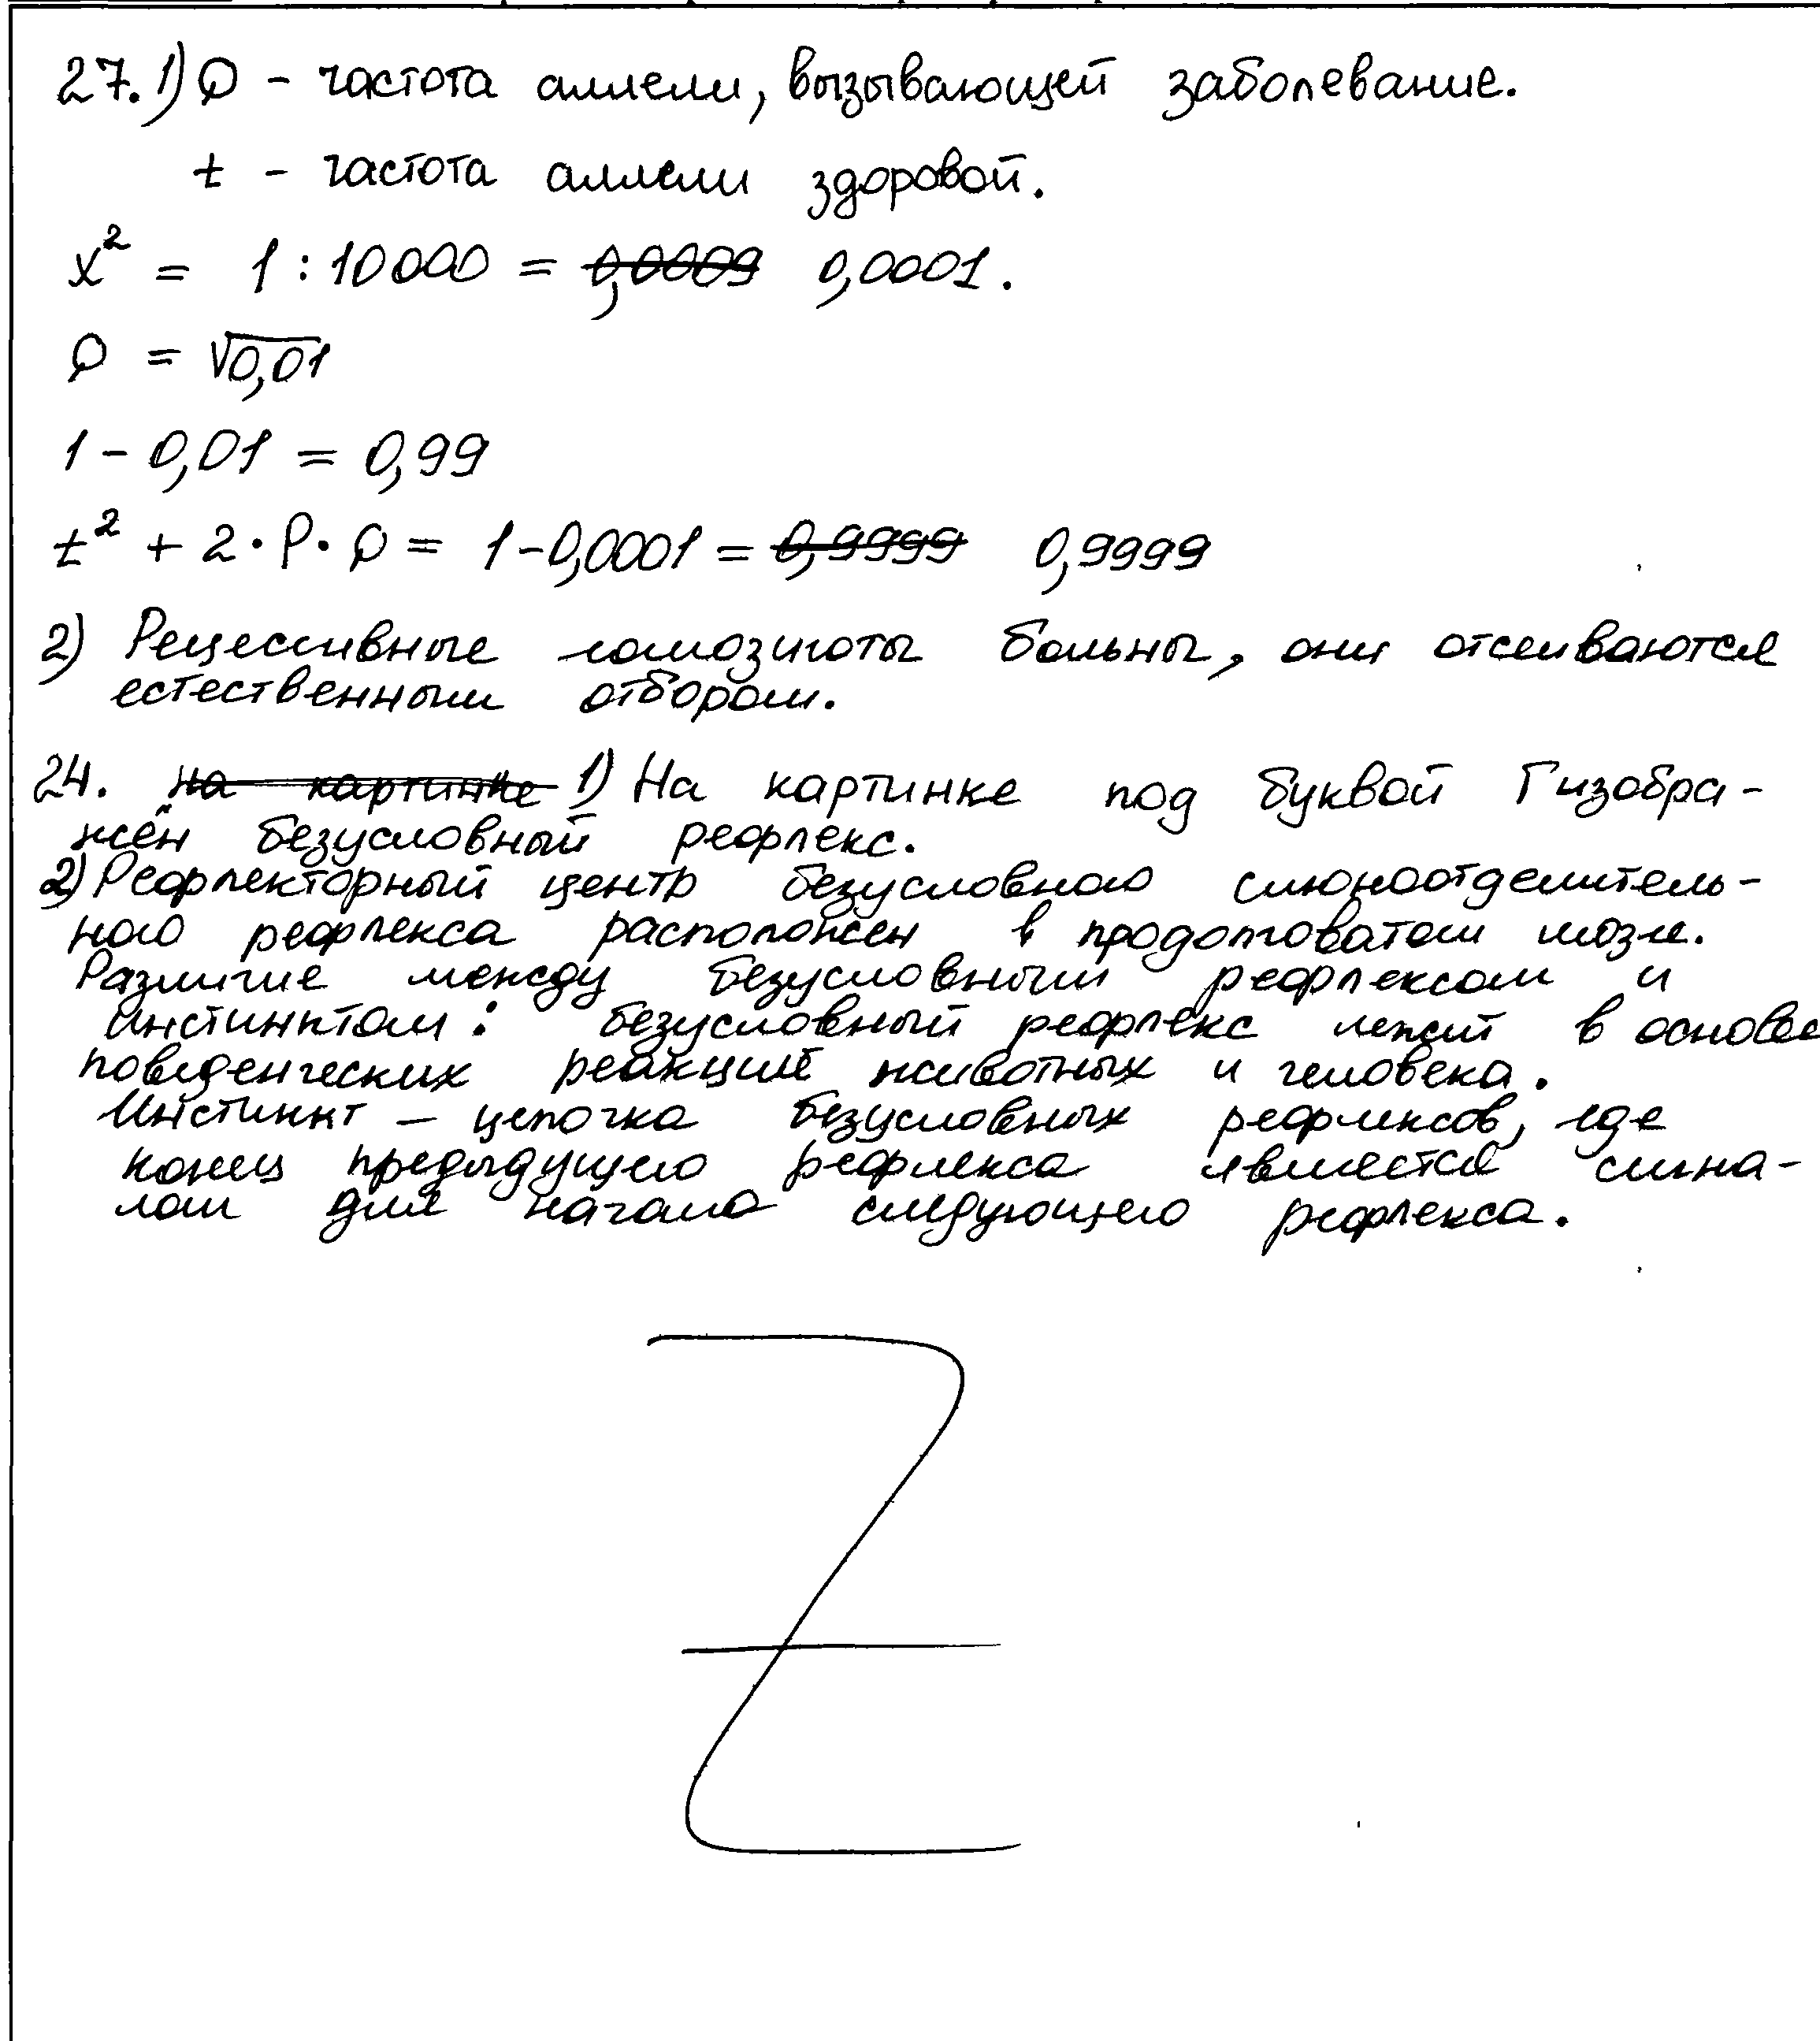 27. 1) Q - частота аллели, вызывающей заболевание.
t - частота аллели здоровой.
x² = 1 : 10000 = ~~0,0009~~ 0,0001.
Q = √0,01
1 - 0,01 = 0,99
t² + 2 · P · Q = 1 - 0,0001 = ~~0,9999~~ 0,9999
2) Рецессивные гомозиготы больны, они отсеиваются
естественным отбором.
24. ~~на картинке~~ 1) На картинке под буквой Г изобра-
жён безусловный рефлекс.
2) Рефлекторный центр безусловного слюноотделитель-
ного рефлекса расположен в продолговатом мозге.
Различие между безусловным рефлексом и
инстинктом: безусловный рефлекс лежит в основе
поведенческих реакций животных и человека.
Инстинкт – цепочка безусловных рефлексов, где
конец предыдущего рефлекса является сигна-
лом для начала следующего рефлекса.
Z